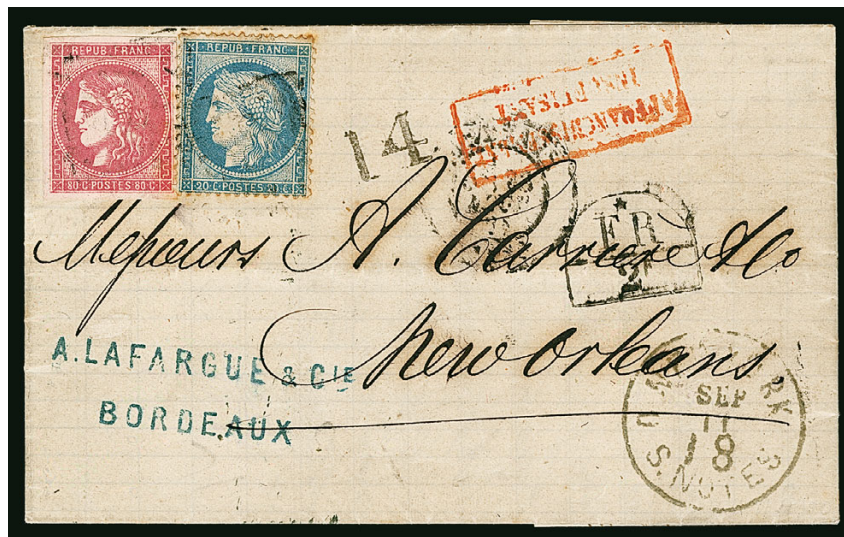 REPUB·FRANC·
80·C·POSTES·80·C
REPUB·FRANC·
20·C·POSTES·20·C
14
AFFRANCHISSEMENT
INSUFFISANT
F.R.
2F
Messieurs A. Carriere & Co
New Orleans
A. LAFARGUE & CIE
BORDEAUX
NEW YORK
SEP
11
18
U.S. NOTES